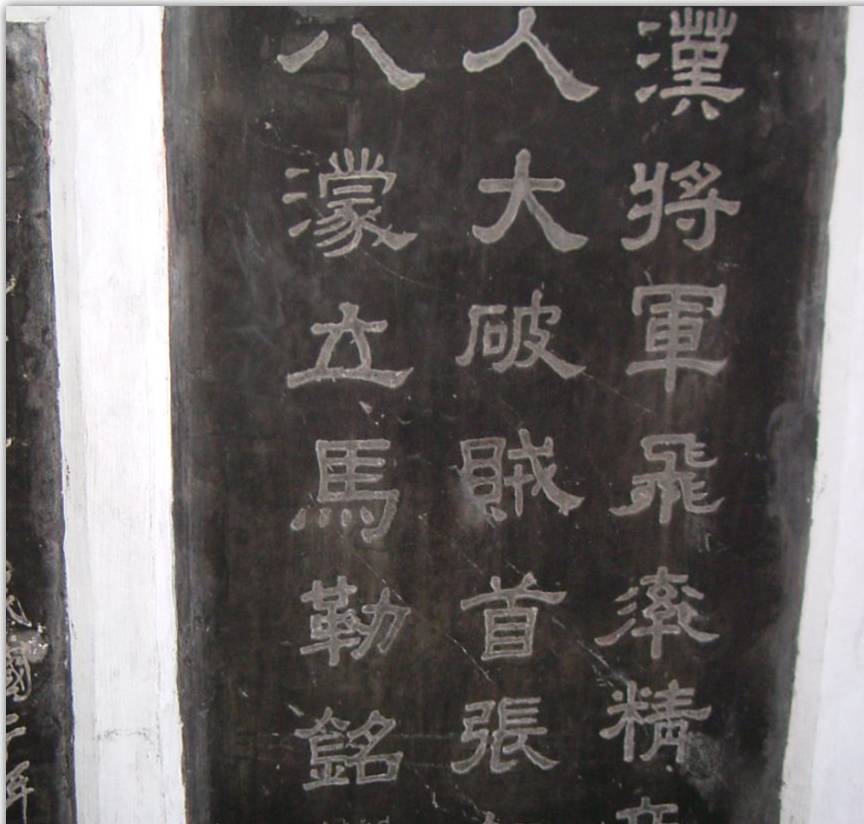 漢將軍飛率精
人大破賊首張
八濛立馬勒銘
國